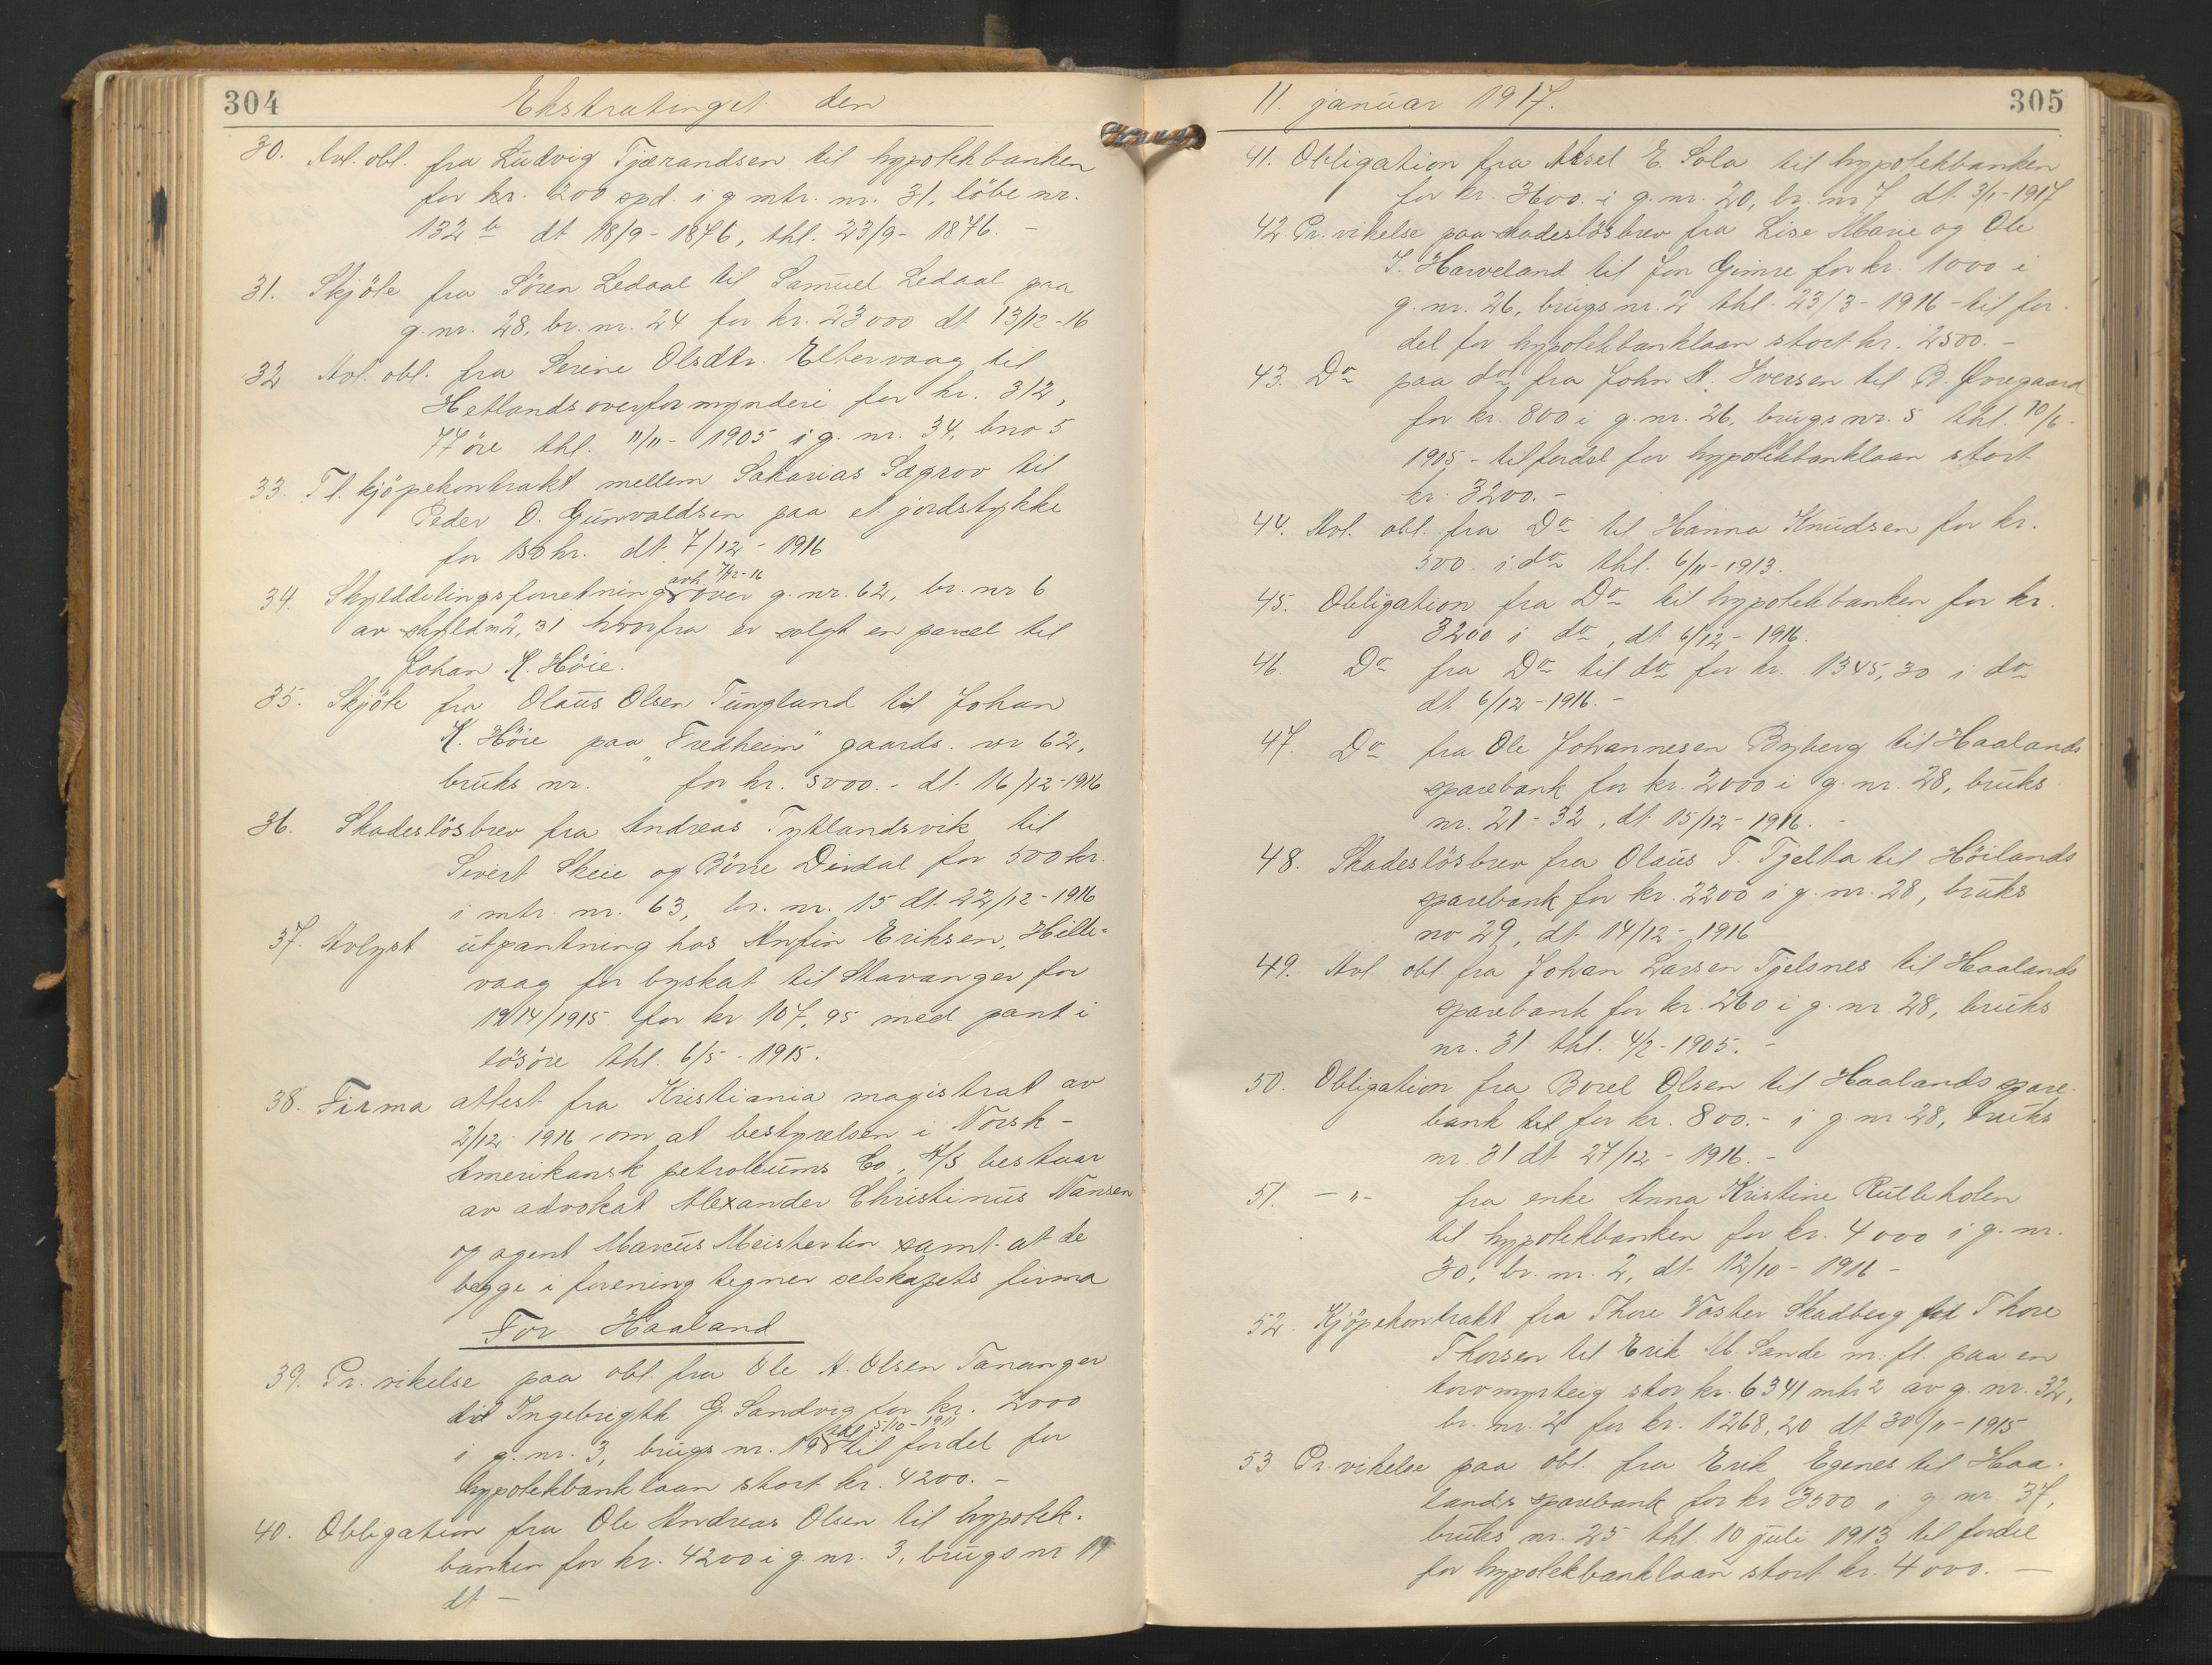 304
Ekstratinget den
30. Avl. obl. fra Ludvig Tjærandsen til hypotekbanken
for kr. 200 spd. i g mtr. nr. 31, löbe nr.
132 b dt 18/9-1876, thl. 23/9-1876. -
31. Skjöte fra Sören Ledaal til Samuel Ledaal paa
g. nr. 28, br. nr. 24 for kr. 23000 dt 13/12-16
32 Avl. obl. fra Serine Olsdtr. Eltervaag til
Hetlands overformynderi for kr. 312,
77 öre thl. 11/11-1905 i g. nr. 34, bno 5
33. Tl. kjöpekontrakt mellem Sakarias Sægrov til
Peder O. Gunvaldsen paa et jordstykke
for 150 kr. dt 7/12-1916
avh. 7/12-16
34. Skylddelingsforretning over g. nr. 62, br. nr 6
av skyld m 2,31 hvorfra er solgt en parcel til
Johan K. Höie.
35. Skjöte fra Olaus Olsen Tungland til Johan
K. Höie paa "Fredheim" gaards. nr 62,
bruks nr. " for kr. 5000.- dt. 16/12-1916
36. Skadeslösbrev fra Andreas Tytlandsvik til
Sivert Skeie og Börre Dirdal for 500 kr.
i mtr. nr. 63, br. nr. 15 dt. 22/12-1916
37. Avlyst utpantning hos Anfin Eriksen, Hille-
vaag for byskat til Stavanger for
1914/1915 for kr 107,95 med pant i
lösöre thl. 6/5-1915.
38. Firma attest fra Kristiania magistrat av
2/12-1916 om at bestyrelsen i Norsk-
Amerikansk petroleums Co, A/S bestaar
av advokat Alexander Christinus Nansen
og agent Marcus Meisterlin samt at de
begge i forening tegner selskapets firma
For Haaland
39. Pr. vikelse paa obl. fra Ole A. Olsen Tananger
til Ingebrigth G. Sandvig for kr. 2000
thl. 5/10-1911
i g. nr. 3, brugs nr. 19 til fordel for
hypotekbanklaan stort kr. 4200.-
40. Obligation fra Ole Andreas Olsen til hypotek-
banken for kr. 4200 i g. nr. 3, brugs nr 19
dt -
11. januar 1917.
305
41. Obligation fra Aksel E. Sola til hypotekbanken
for kr. 3600. i g. nr. 20, br. nr 7 dt. 3/1-1917
42. Pr. vikelse paa skadeslösbrev fra Lise Marie og Ole
I. Harveland til Jon Gimre for kr. 1000 i
g. nr. 26, brugs nr. 2 thl. 23/3-1916 - til for-
del for hypotekbanklaan stort kr. 2500.-
43. Do paa do fra John A. Iversen til B. Øvregaard
for kr. 800 i g. nr. 26, brugs nr. 5 thl. 10/6-
1905 - til fordel for hypotekbanklaan stort
kr. 3200.-
44. Avl. obl. fra Do til Hanna Knudsen for kr.
500. i do thl. 6/11-1913.
45. Obligation fra Do til hypotekbanken for kr.
3200 i do, dt. 6/12-1916.
46. Do fra Do til do for kr. 1345,30 i do
dt 6/12-1916.-
47. Do fra Ole Johannesen Byberg til Haalands
sparebank for kr. 2000 i g. nr. 28, bruks
nr. 21-32, dt. 15/12-1916.-
48. Skadeslösbrev fra Olaus T. Tjelta til Höilands
sparebank for kr. 2200 i g. nr. 28, bruks
no 29, dt 14/12-1916
49. Avl. obl. fra Johan Larsen Tjelsnes til Haalands
sparebank for kr. 260 i g. nr. 28, bruks
nr. 31 thl. 4/2-1905.-
50. Obligation fra Borel Olsen til Haalands spare-
bank til for kr. 800.- i g. nr 28, bruks
nr. 31 dt 27/12-1916.-
51. -"- fra enke Anna Kristine Rulleholen
til hypotekbanken for kr. 4000 i g. nr.
30, br. nr. 2, dt 12/10-1916-
52. Kjöpekontrakt fra Thore Voster Skadberg Thore
Thorsen til Erik M. Sande m. fl. paa en
torvmyrteig stor kr. 6341 mtr 2 av g. nr. 32,
br. nr. 2 for kr. 1268,20 dt 30/11-1915
53 Pr. vikelse paa obl. fra Erik Egenes til Haa-
lands sparebank for kr 3500 i g nr. 37,
bruks nr. 25 thl. 10 juli 1913 til fordel
for hypotekbanklaan stort kr. 4000. -